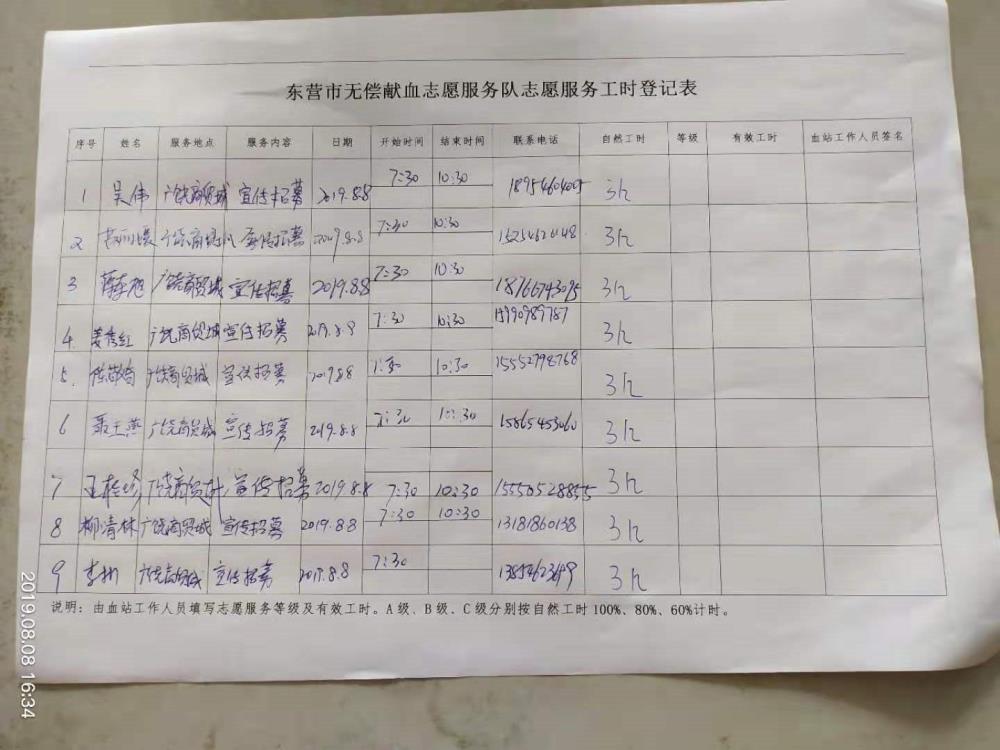 东营市无偿献血志愿服务队志愿服务工时登记表
序号 姓名 服务地点 服务内容 日期 开始时间 结束时间 联系电话 自然工时 等级 有效工时 血站工作人员签名
1 吴伟 广饶商贸城 宣传招募 2019.8.8 7:30 10:30 3h
2 宣传招募 2019.8.8 7:30 10:30 3h
3 广饶商贸城 宣传招募 2019.8.8 7:30 10:30 18766743095 3h
4 姜秀红 广饶商贸城 宣传招募 2019.8.8 7:30 10:30 15990989787 3h
5 广饶商贸城 宣传招募 2019.8.8 10:30 15552798768 3h
6 聂玉燕 广饶商贸城 宣传招募 2019.8.8 7:30 10:30 15865453060 3h
7 宣传招募 2019.8.8 7:30 10:30 15550528855 3h
8 柳清林 广饶商贸城 宣传招募 2019.8.8 7:30 10:30 13181860138 3h
9 李彬 广饶商贸城 宣传招募 2019.8.8 7:30 3h
说明：由血站工作人员填写志愿服务等级及有效工时。A级、B级、C级分别按自然工时100%、80%、60%计时。
2019.08.08 16:34